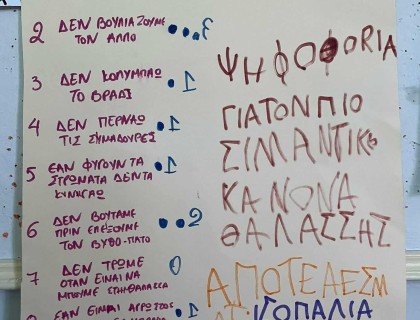 2 ΔΕΝ ΒΟΥΛΙΑΖΟΥΜΕ
ΤΟΝ ΑΛΛΟ
3
3 ΔΕΝ ΚΟΛΥΜΠΑΩ
ΤΟ ΒΡΑΔΙ
1
4 ΔΕΝ ΠΕΡΝΑΩ
ΤΙΣ ΣΥΜΑΔΟΥΡΕΣ
1
5 ΕΑΝ ΦΥΓΟΥΝ ΤΑ
ΣΤΡΩΜΑΤΑ ΔΕΝ ΤΑ
ΚΥΝΗΓΑΩ
1
6 ΔΕΝ ΒΟΥΤΑΜΕ
ΠΡΙΝ ΕΛΕΞΟΥΜΕ
ΤΟΝ ΒΥΘΟ-ΠΑΤΟ
2
7 ΔΕΝ ΤΡΩΜΕ
ΟΤΑΝ ΕΙΝΑΙ ΝΑ
ΜΠΟΥΜΕ ΣΤΗ ΘΑΛΑΣΣΑ
0
ΕΑΝ ΕΙΜΑΙ ΑΡΩΣΤΟΣ
1
ΨΗΦΟΦΟRIA
ΓΙΑ ΤΟΝ ΠΙΟ
ΣΙΜΑΝΤΙΚΟ
ΚΑΝΟΝΑ
ΘΑΛΑΣΣΗΣ
ΑΠΟΤΕΛΕΣΜ
ΙΣΟΠΑΛΙΑ